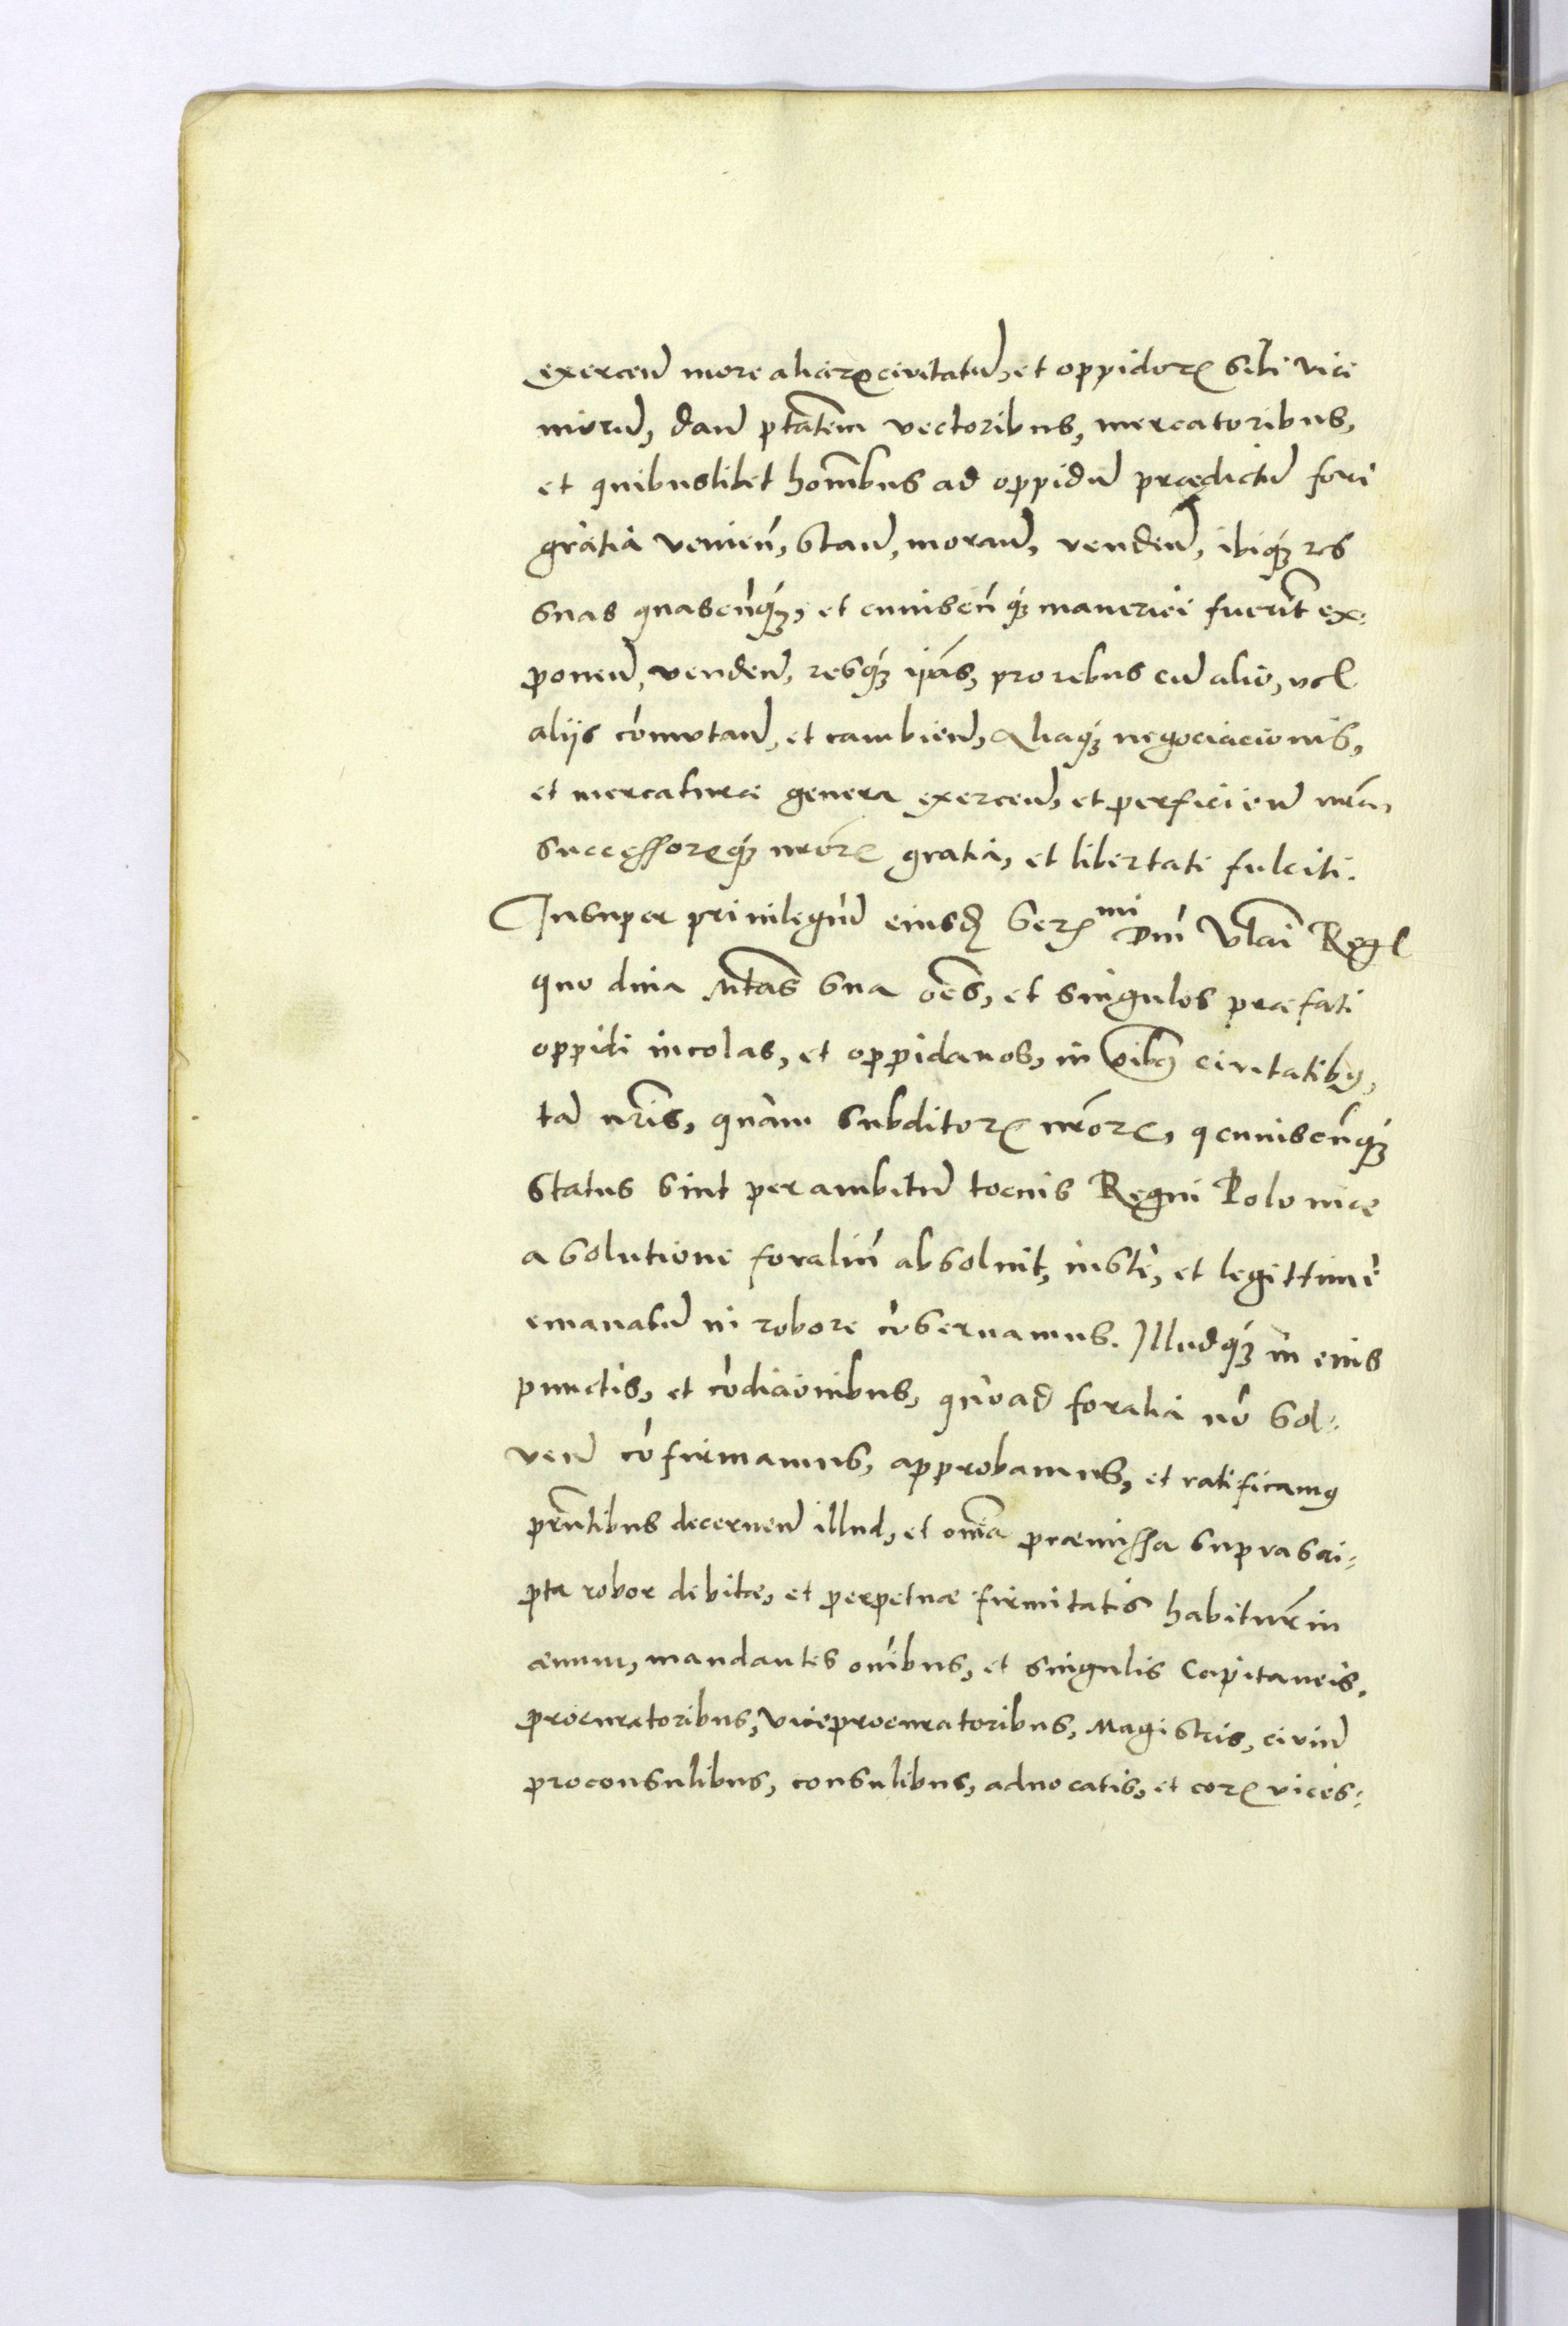 exercend more aliarꝝ civitatum, et oppidorꝝ sibi vici
niorum, dand ptātem vectoribus, mercatoribus,
et quibuslibet hom̄ibus ad oppidū prædictū fori
gratia venien̄, stand, morand, vendend, ibiqꝫ res
suas quascūqꝫ, et cuiuscūqꝫ maneriei fuerīt ex⸗
ponend, vendend, resqꝫ ip̄as, pro rebus cū alio, vel
alijs cōmutand, et cambiend, Aliaqꝫ negociacionis,
et mercaturæ genera exercend, et perficiend nr̄a,
successorꝝqꝫ nr̄orꝝ gratia, et libertati fulciti.
Insuper priuilegiū eiusdꝫ Serꝫ mi Dn̄i Vlai Regꝭ
quo diua Mtas̄ sua oēs, et singulos præfati
oppidi incolas, et oppidanos, in oībꝫ ciuitatibꝫ,
tā nr̄is, quàm subditorꝝ nr̄orꝝ, qcuiuscūqꝫ
status sint per ambitū tocius Regni Poloniæ
a solutione foraliū absoluit, iustè, et legittimè
emanatū in robore cōseruamus. Illudqꝫ in eius
punctis, et cōdicionibus, quoad foralia nō sol⸗
uend cōfirmamus, approbamus, et ratificamꝰ
prn̄tibus decernend illud, et om̄ia præmissa suprascri⸗
pta robor debitæ, et perpetuæ firmitatis habitur̄ in
æuum, mandantes om̄ibus, et singulis Capitaneis,
procuratoribus, Viceprocuratoribus, Magistris, ciuiū
proconsulibus, consulibus, aduocatis, et eorꝝ vices⸗